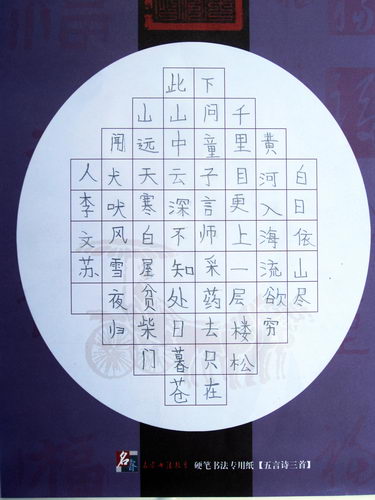 白日依山尽
黄河入海流欲穷
千里目更上一层楼松
下问童子言师采药去只在
此山中云深不知处日暮苍
山远天寒白屋贫柴门
闻犬吠风雪夜归
人李文苏
硬笔书法专用纸【五言诗三首】